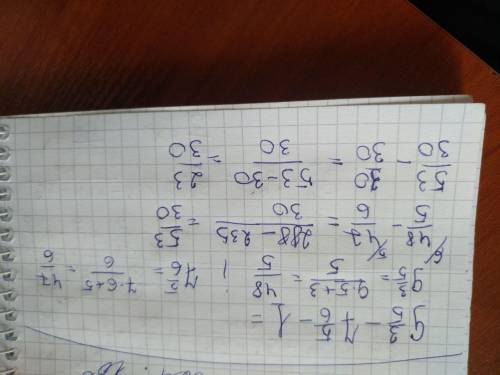 9 3/5 − 7 5/6 − 1 =
9 3/5 = 9·5+3/5 = 48/5 ; 7 5/6 = 7·6+5/6 = 47/6
48/5 − 47/6 = 288−235/30 = 53/30
53/30 − 30/30 = 53−30/30 = 23/30